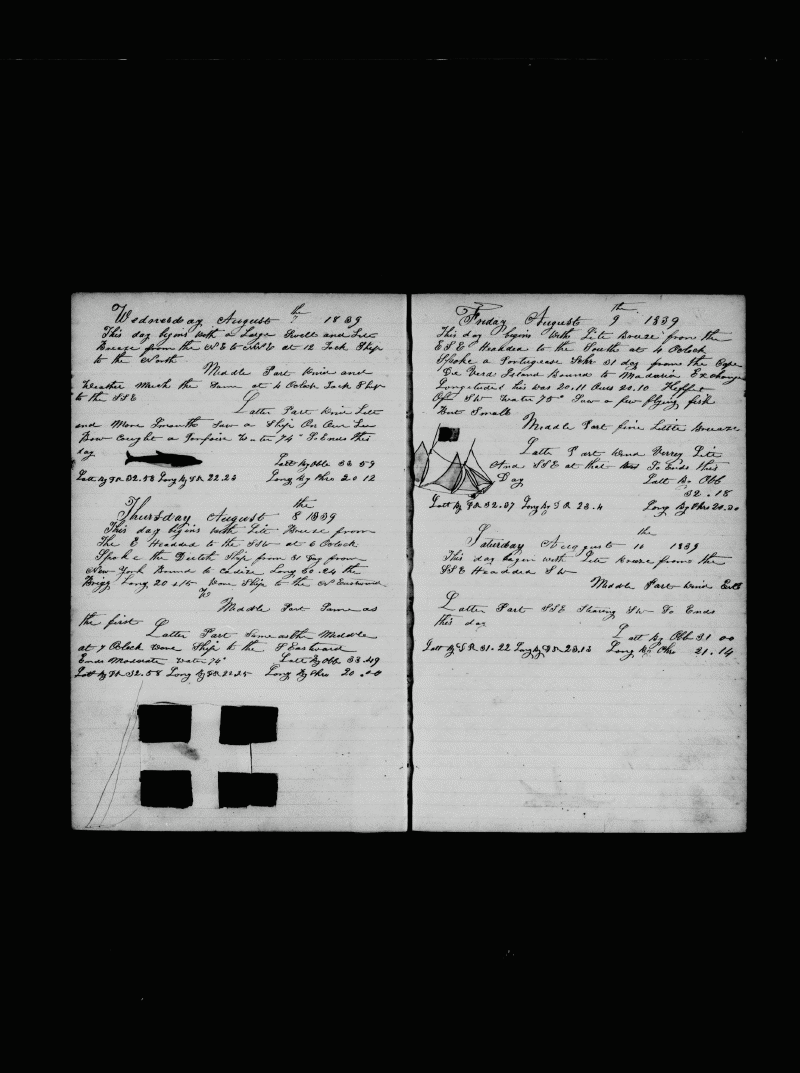 Wednesday August 7th 1839
This day begins with a Large Swell and Lite
Breeze from the NE to NNE at 12 Tack Ship
to the North
Middle Part Wind and
Weather Much the Same at 4 Oclock Tack Ship
to the SSE
Latter Part Wind Lite
and More Smooth Saw a Ship On Our Lee
Bow Caught a Water 74° So Ends this
day
Latt By Obb 33 59
Latt By D.R. 32.58 Long By D.R. 22.23 Long By Chro 20 12
Thursday August the 8 1839
This day begins with Lite Breeze from
The E Headed to the SSW at 6 Oclock
Spoke the Dutch Ship from 31 Day from
New York Bound to Cadize Long 20.24 the
Brigg Long 20 &15 Wore Ship to the N Eastward
Middle Part Same as
the first
Latter Part Same as the Middle
at 7 Oclock Wore Ship to the S Eastward
Ends Moderate Water 74° Latt By Obb 33.49
Latt By D.R. 32.58 Long By D.R. 22.25 Long By Chro 20
Friday August 9th 1839
This day begins With Lite Breeze from the
ESE Headded to the South at 4 Oclock
Spoke a Portugease Schr 31 day from the Cape
De Verd Island Bound to Madaria Exchange
Longetudes his was 20.11 Ours 20.10 Keft
Of SW Water 75° Saw a few flying fish
But Small
Middle Part fine Little Breeze
Latte Part Wind Verrey Lite
And SSE at that So Ends this
Day Latt By Obb
32.18
Latt By D.R. 32.37 Long By D.R. 23.4 Long By Chro 20.20
Saturday Auggust the 10 1839
This day began with Lite Breeze from the
SSE Headded SW
Middle Part Wind
Latter Part SSE SW So Ends
this day
Latt By Obb 31 00
Latt By D.R. 31.22 Long By D.R. 23.13 Long By Chro 21.14